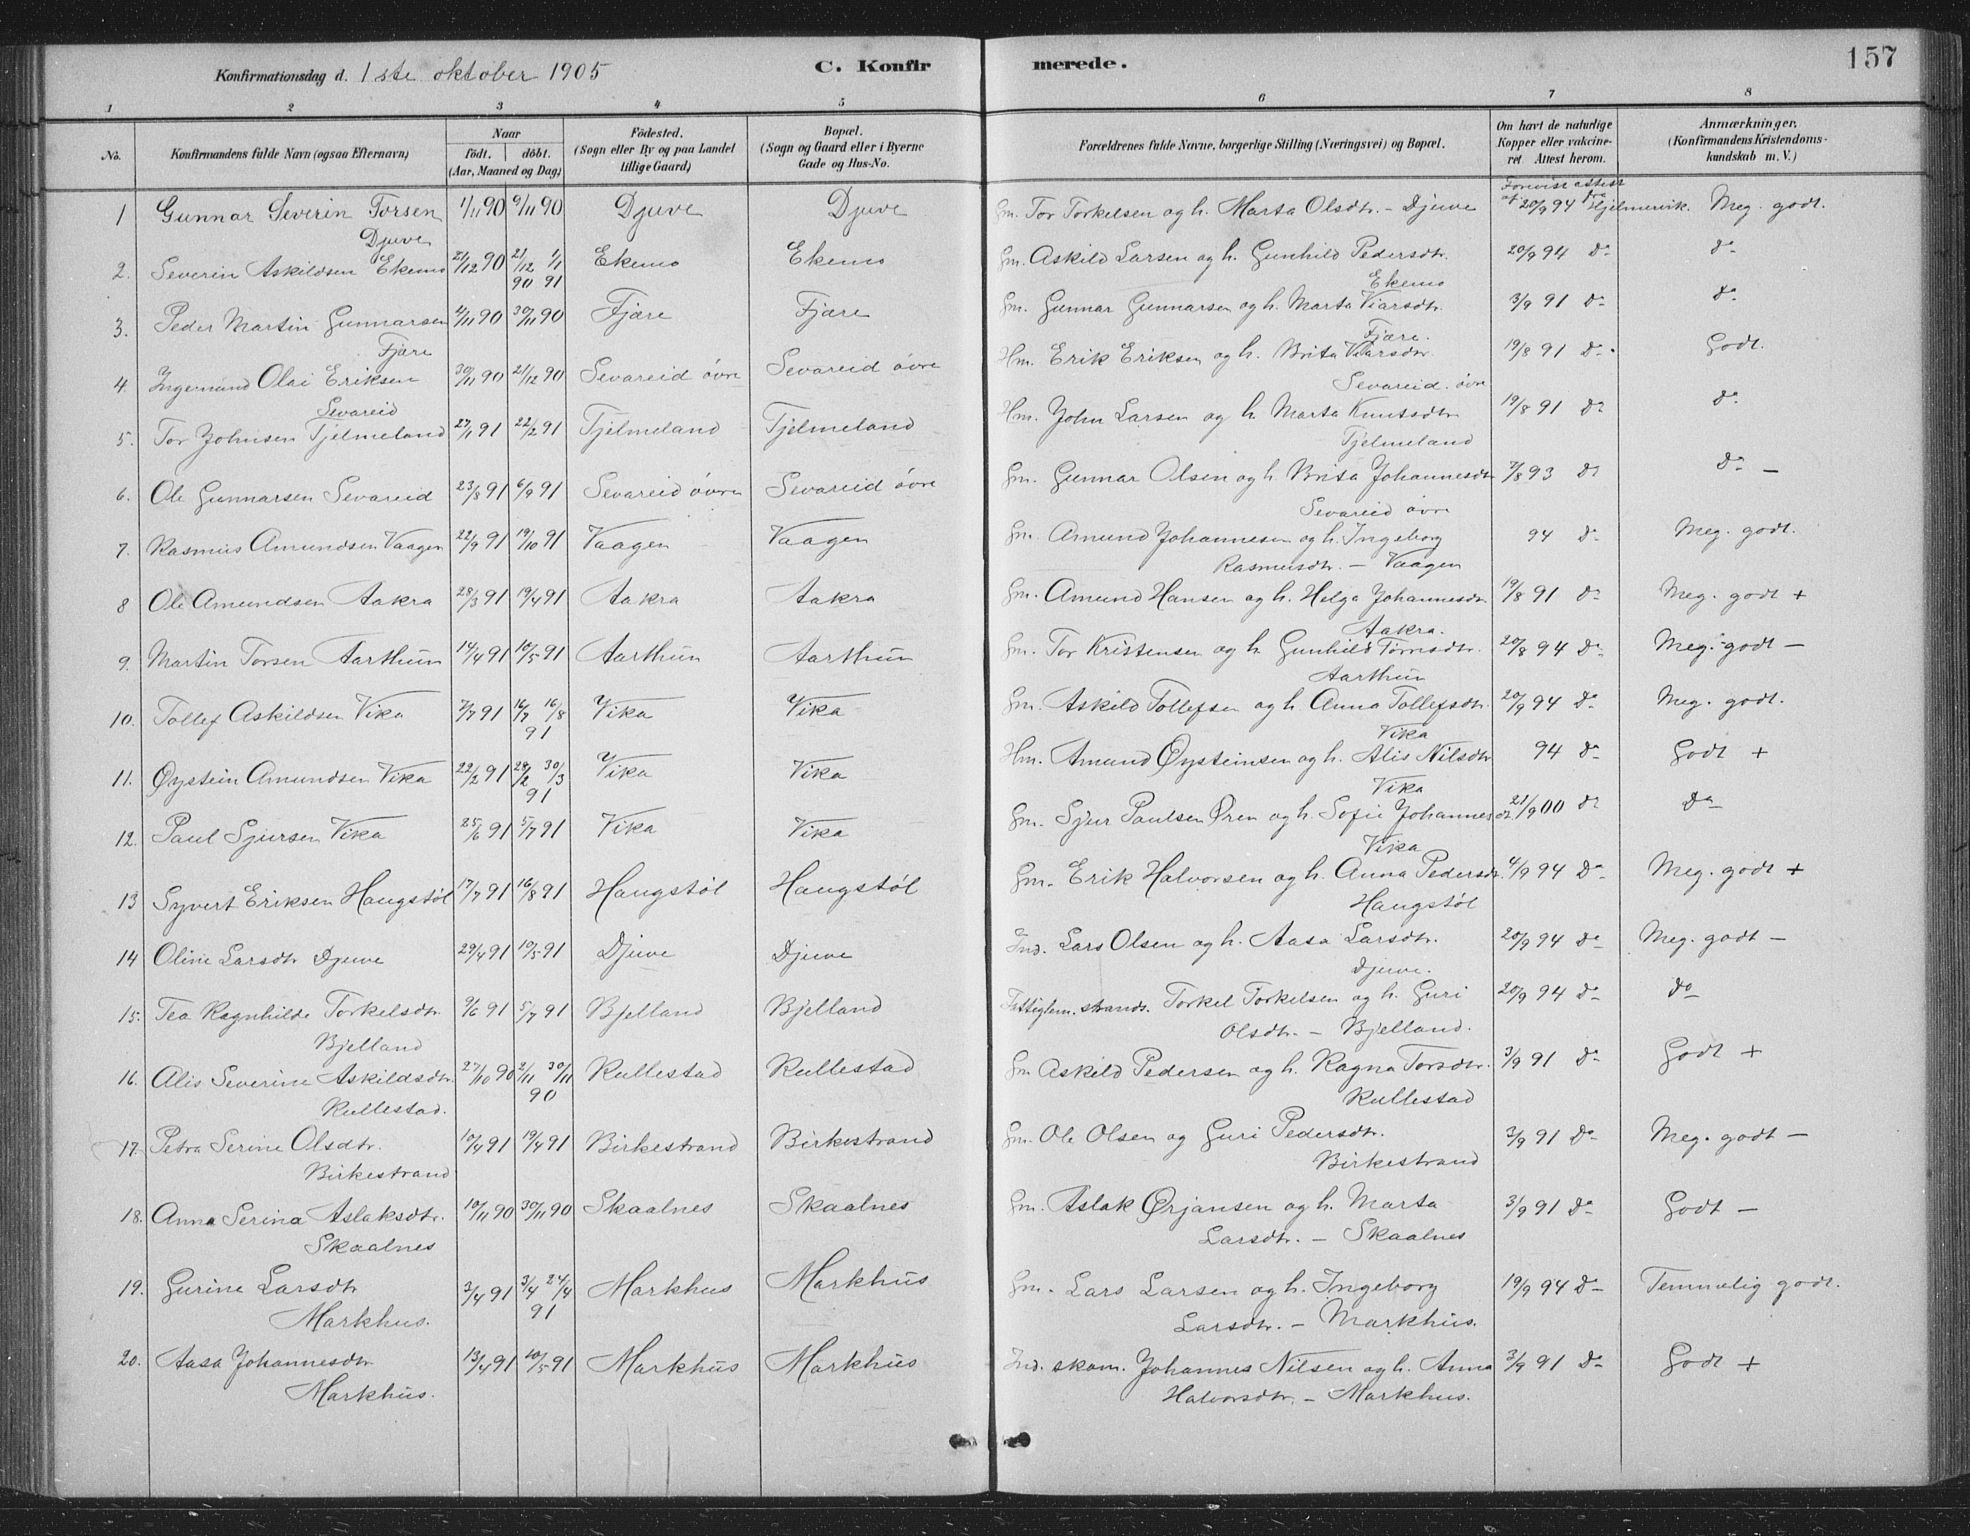 157
Konfirmationsdag d. 1ste oktober 1905 C. Konfirmerede.
1 2 3 4 5 6 7 8
No. Konfirmandens fulde Navn (ogsaa Efternavn) Naar födt. döbt. (Aar, Maaned og Dag) Födested. (Sogn eller By og paa Landet tillige Gaard) Bopæl. (Sogn og Gaard eller i Byerne Gade og Hus-No. Forældrenes fulde Navne, borgerlige Stilling (Næringsvei) og Bopæl. Om havt de naturlige Kopper eller vakcineret. Attest herom. Anmærkninger. (Konfirmandens Kristendomskundskab m. V.)
1 Gunnar Severin Torsen Djuve 1/11 90 9/11 90 Djuve Djuve Gm. Tor Torkelsen og h. Marta Olsdtr. - Djuve Forevist attest af 20/9 94 Hjelmervik. Meg. godt.
2. Severin Askildsen Ekemo 21/12 90 21/12 90 1/1 91 Ekemo Ekemo Gm. Askild Larsen og h. Gunhild Pedersdtr. Ekemo 20/9 94 Do Do
3. Peder Martin Gunnarsen Fjære 4/11 90 30/11 90 Fjære Fjære Gm. Gunnar Gunnarsen og h. Marta Viarsdtr. Fjære. 3/9 91 Do Do
4. Ingemund Olai Eriksen Sevareid 30/11 90 21/12 90 Sevareid övre Sevareid övre Hm. Erik Eriksen og h. Brita Viarsdtr. Sevareid. övre 19/8 91 Do Godt.
5. Tor Johnsen Tjelmeland 27/1 91 22/2 91 Tjelmeland Tjelmeland Hm. John Larsen og h. Marta Knutsdtr. Tjelmeland 19/8 91 Do Do
6. Ole Gunnarsen Sevareid 23/8 91 6/9 91 Sevareid övre Sevareid övre Gm. Gunnar Olsen og h. Brita Johannesdtr. Sevareid övre 7/8 93 Do Do -
7. Rasmus Amundsen Vaagen 22/9 91 19/10 91 Vaagen Vaagen Gm. Amund Johannesen og h. Ingeborg Rasmusdtr. - Vaagen 94 Do Meg. godt.
8 Ole Amundsen Aakra 28/3 91 19/4 91 Aakra Aakra Gm. Amund Hansen og h. Helga Johannesdtr. Aakra. 19/8 91 Do Meg. godt +
9. Martin Torsen Aarthun 14/4 91 10/5 91 Aarthun Aarthun Gm. Tor Kristensen og h. Gunhild Aarthun 20/8 94 Do Meg. godt -
10. Tollef Askildsen Vika 7/7 91 16/7 16/8 91 Vika Vika Gm. Askild Tollefsen og h. Anna Tollefsdtr. Vika 20/9 94 Do Meg. godt.
11. Øystein Amundsen Vika 22/2 91 28/2 30/3 91 Vika Vika Hm. Amund Øysteinsen og h. Alis Nilsdtr. Vika 94 Do Godt +
12. Paul Sjursen Vika 25/6 91 5/7 91 Vika Vika Gm. Sjur Paulsen Øren og h. Sofie Johannesd. Vika 21/9 00 Do Do
13 Syvert Eriksen Haugstøl 17/7 91 16/8 91 Haugstøl Haugstøl Gm. Erik Halvorsen og h. Anna Pedersdtr. Haugstøl 4/9 94 Do Meg. godt +
14 Oline Larsdtr Djuve 29/4 91 10/5 91 Djuve Djuve Ind. Lars Olsen og h. Aasa Larsdtr. Djuve. 20/9 94 Do Meg. godt -
15. Tea Ragnhilde Torkelsdtr. Bjelland 9/6 91 5/7 91 Bjelland Bjelland Fattiglem. strands. Torkel Torkelsen og h. Guri Olsdtr. - Bjelland. 20/9 94 Do Do
16. Alis Severine Askildsdtr. Rullestad. 27/10 90 2/11 30/11 90 Rullestad Rullestad Gm Askild Pedersen og h. Ragna Torsdtr. Rullestad 3/9 91 Do Godt +
17. Petra Serine Olsdtr. Birkestrand 10/4 91 19/4 91 Birkestrand Birkestrand Gm. Ole Olsen og Guri Pedersdtr. Birkestrand 3/9 91 Do Meg. godt -
18. Anna Serina Aslaksdtr. Skaalnes 10/11 90 30/11 90 Skaalnes Skaalnes Gm. Aslak Ørjansen og h. Marta Larsdtr. - Skaalnes 3/9 91 Do Godt -
19. Gurine Larsdtr Markhus. 3/4 91 3/4 24/4 91 Markhus Markhus Gm. Lars Larsen og h. Ingeborg Larsdtr. - Markhus. 19/9 94 Do Temmelig godt.
20. Aasa Johannesdtr Markhus. 13/4 91 10/5 91 Markhus Markhus Ind. skom. Johannes Nilsen og h. Anna Halvorsdtr. - Markhus. 3/9 91 Do Godt +